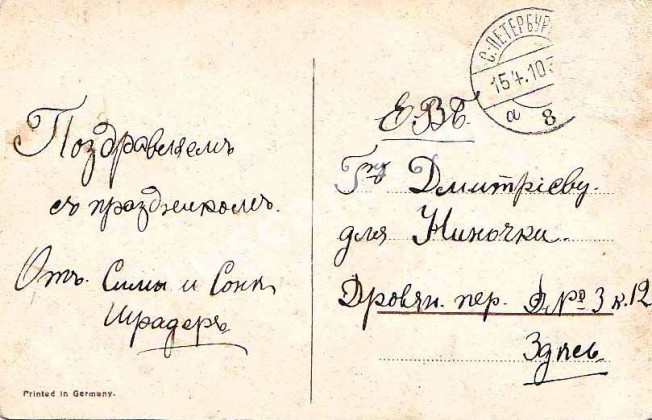 Поздравляемъ
съ праздникомъ.
Отъ Симы и Сони
Шрадеръ
Printed in Germany.
С.-ПЕТЕРБУР
15.4.10
а 8
Е.ВБ.
Гну Дмитріеву.
для Ниночки.
Дровян. пер. Д. № 3 к. 12
Здѣсь